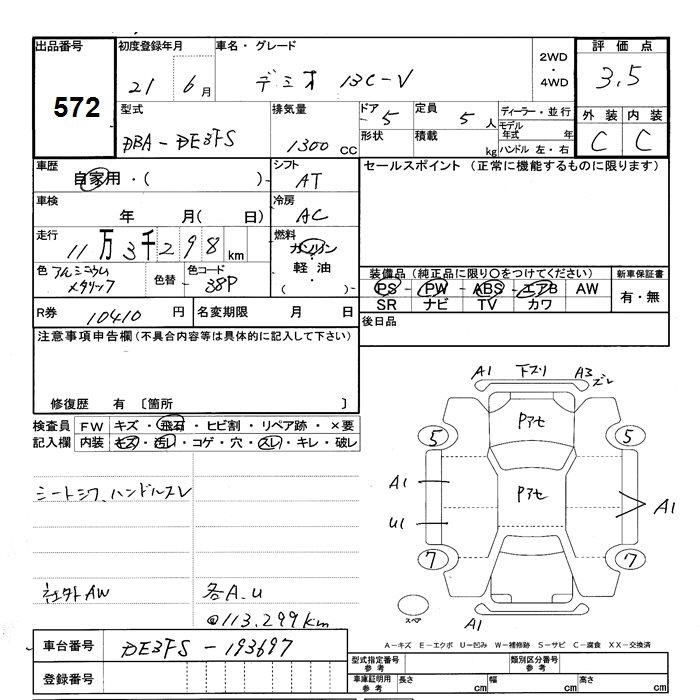 出品番号 572
初度登録年月 21 6月
車名・グレード デミオ 13C-V
2WD・4WD
評価点 3.5
型式 DBA-DE3FS
排気量 1300 CC
ドア・形状 5
定員 5人
積載 kg
ディーラー・並行
モデル年式 年
ハンドル 左・右
外装 内装
C C
車歴 自家用・( )
シフト AT
セールスポイント (正常に機能するものに限ります)
車検 年 月( 日)
冷房 AC
走行 11万3千298km
燃料 ガソリン・軽油・( )
色 アルミニウムメタリック
色替
色コード 38P
装備品 (純正品に限り○をつけてください)
新車保証書
PS PW ABS エアB AW
SR ナビ TV カワ
有・無
R券 10410 円
名変期限 月 日
後日品
注意事項申告欄 (不具合内容等は具体的に記入して下さい)
修復歴 有 〔箇所 〕
検査員記入欄
FW キズ・飛石・ヒビ割・リペア跡・×要
内装 キズ・汚レ・コゲ・穴・スレ・キレ・破レ
シートシワ、ハンドルスレ
社外AW
各A.U
@113.299km
A1 下スリ A3 ズレ
Pアセ
5 5
Pアセ
A1
U1
A1
7 7
スペア
A1
A-キズ E-エクボ U-凹み W-補修跡 S-サビ C-腐食 XX-交換済
車台番号 DE3FS-193697
登録番号
型式指定番号 参考
類別区分番号 参考
車庫証明用 参考
長さ cm 幅 cm 高さ cm